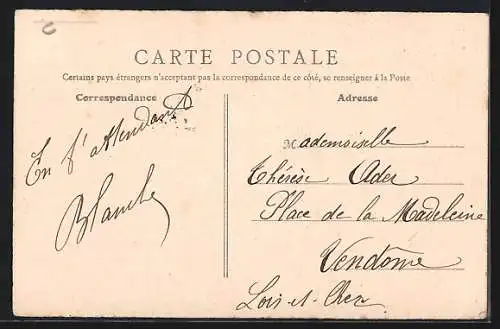 CARTE POSTALE
Certains pays étrangers n'acceptant pas la correspondance de ce côté, se renseigner à la Poste
Correspondance
En t'attendant
Blanche
Adresse
Mademoiselle
Thérèse Ader
Place de la Madeleine
Vendôme
Loir-et-Cher